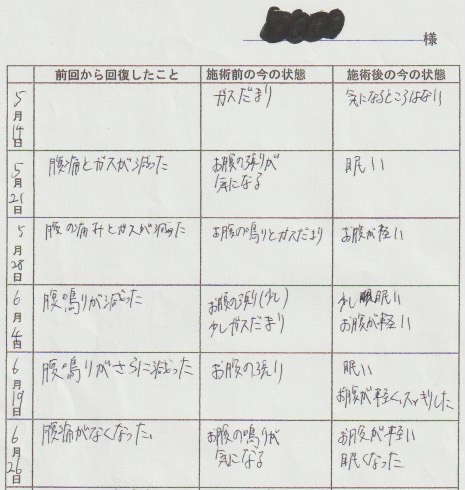 様
前回から回復したこと 施術前の今の状態 施術後の今の状態
5月14日 ガスだまり 気になるところはない
5月21日 腹痛とガスが減った お腹の張りが 眠い
気になる
5月28日 腹の痛みとガスが減った お腹の鳴りとガスだまり お腹が軽い
6月4日 腹鳴りが減った お腹の張り(少し) 少し眠い
少しガスだまり お腹が軽い
6月19日 腹鳴りがさらに減った お腹の張り 眠い
お腹が軽く、スッキリした
6月26日 腹痛がなくなった。 お腹の鳴りが お腹が軽い
気になる 眠くなった